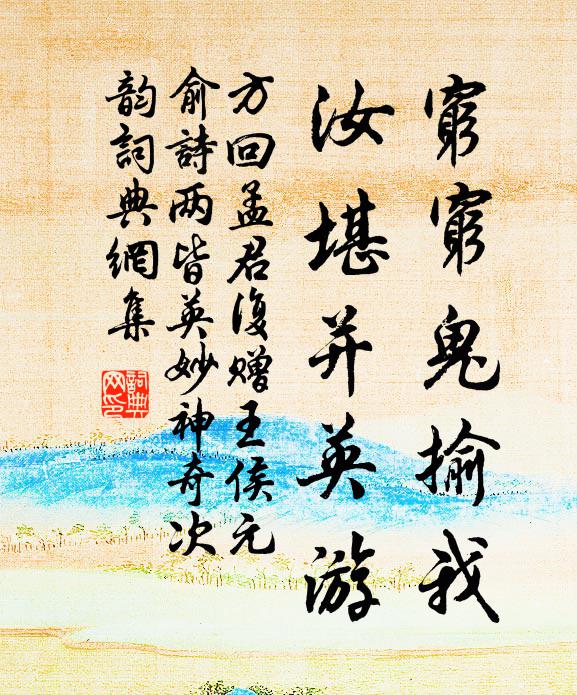 窮窮鬼揄我
汝堪并英游
方回孟君復贈王侯元
俞詩两皆英妙神奇次
韵詞典網集
詞典
网印